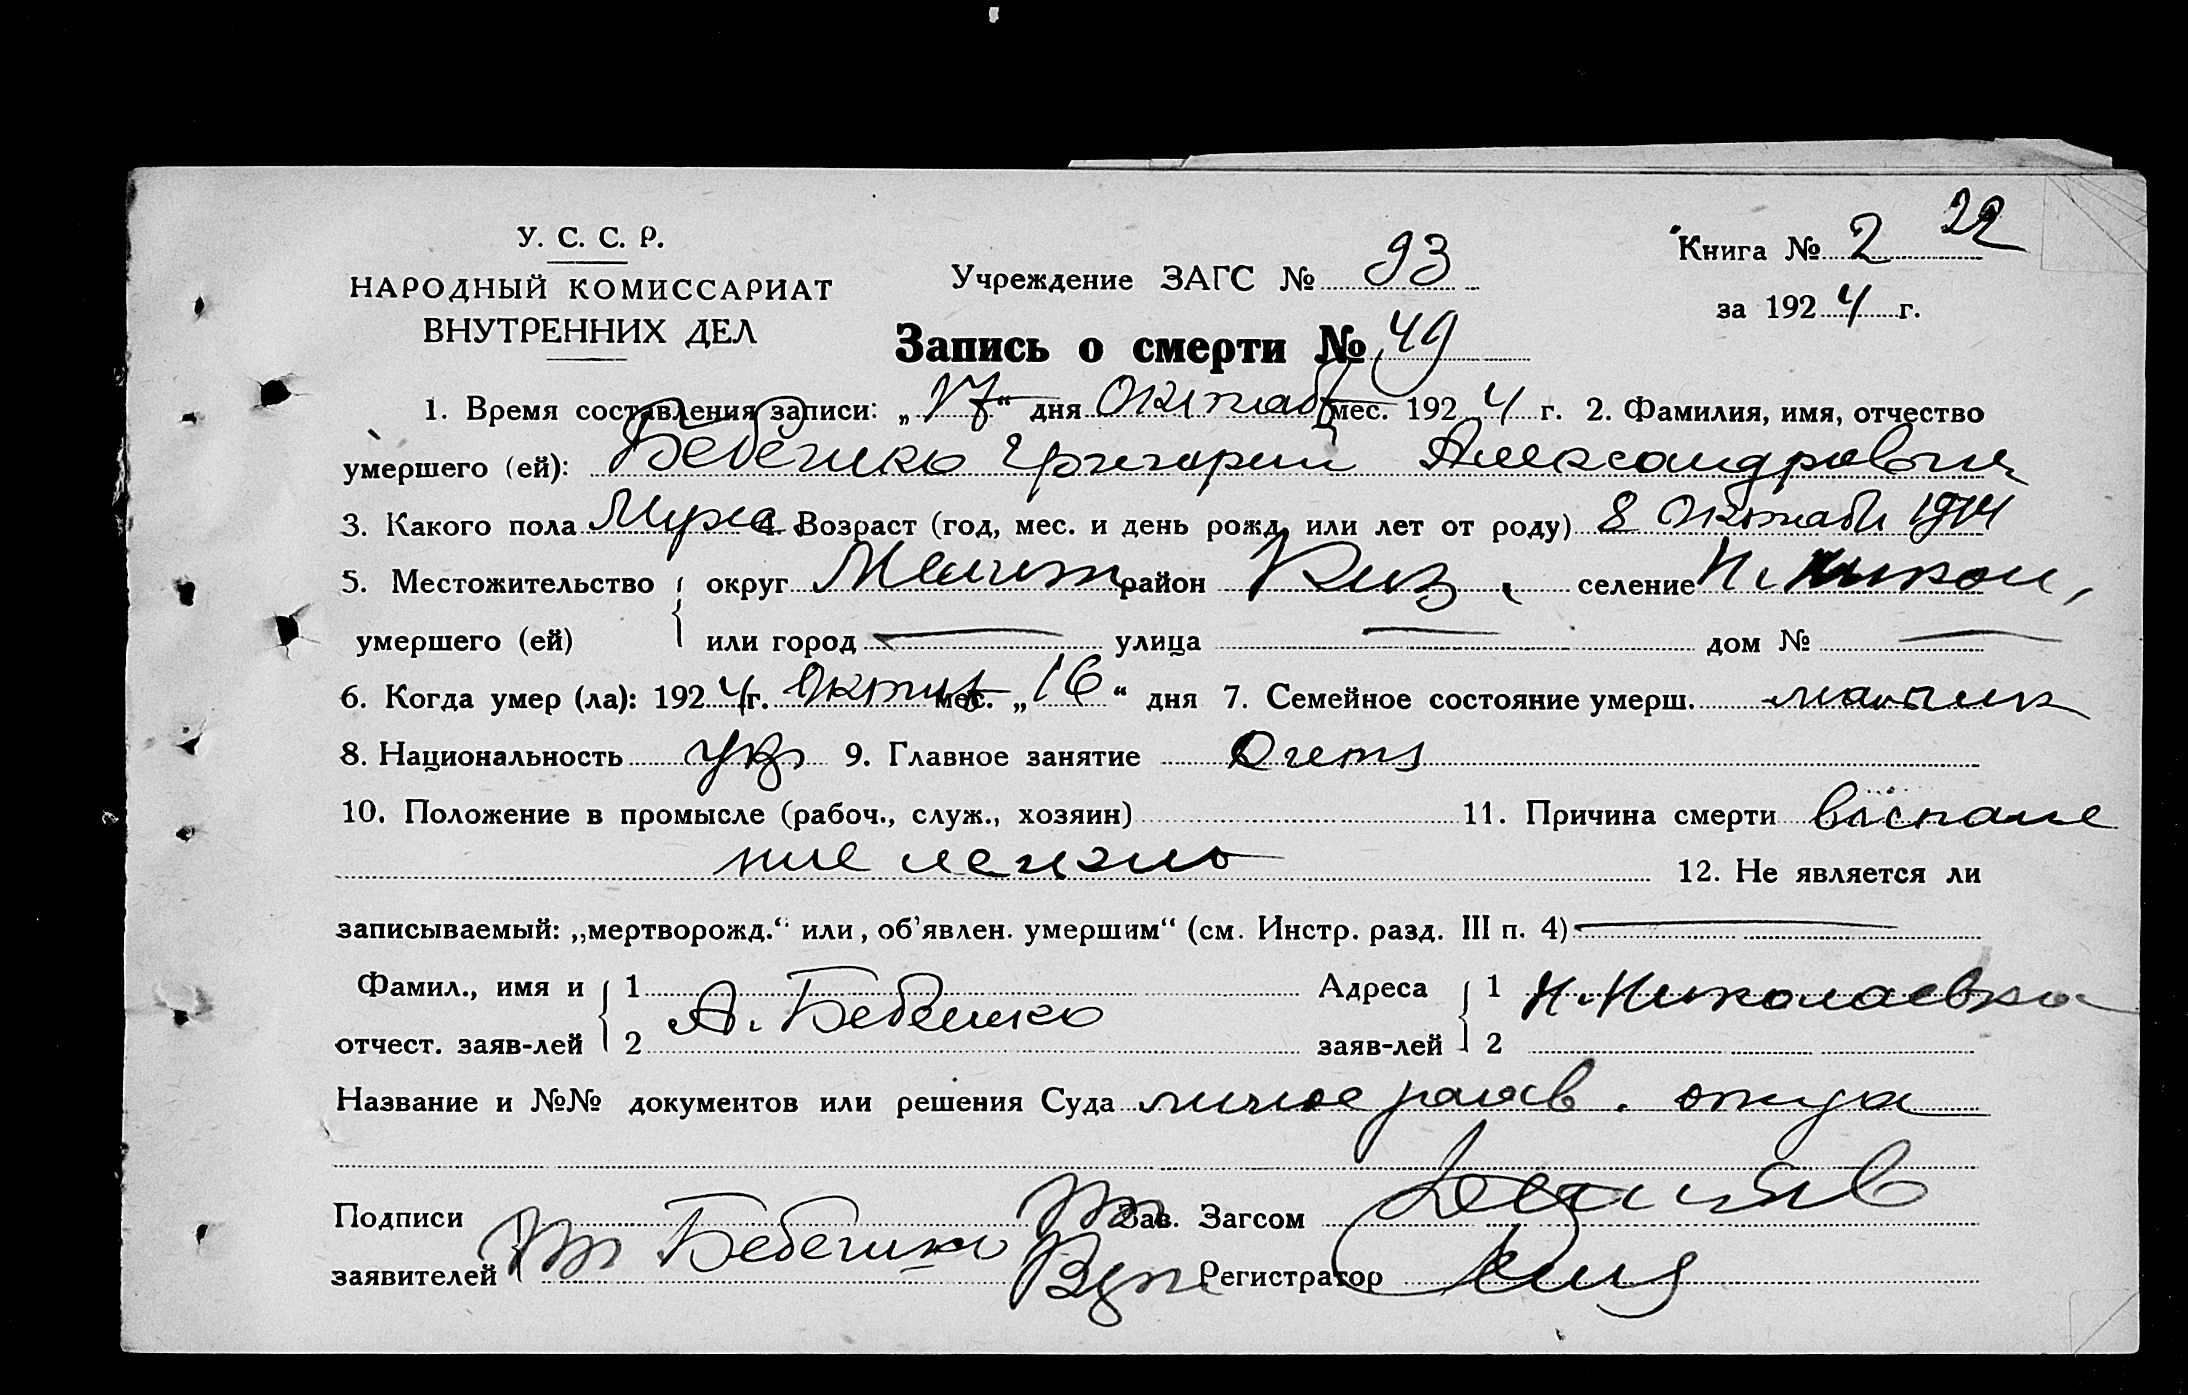 У. С. С. Р.
НАРОДНЫЙ КОМИССАРИАТ
ВНУТРЕННИХ ДЕЛ
Учреждение ЗАГС № 93
Книга № 2 22
за 1924 г.
Запись о смерти № 49
1. Время составления записи: „17“ дня Октяб мес. 1924 г. 2. Фамилия, имя, отчество
умершего (ей): Бебешко Григорий Александрович
3. Какого пола Мужс 4. Возраст (год, мес. и день рожд. или лет от роду) 8 Октяб
5. Местожительство округ Мелит район селение Н. Никол,
умершего (ей) или город — улица — дом № —
6. Когда умер (ла): 1924 г. Октяб мес. „16“ дня 7. Семейное состояние умерш. мальчик
8. Национальность укр 9. Главное занятие
10. Положение в промысле (рабоч., служ., хозяин) 11. Причина смерти воспале
ние
12. Не является ли
записываемый: „мертворожд.“ или, об’явлен. умершим“ (см. Инстр. разд. III п. 4) —
Фамил., имя и 1 А. Бебешко Адреса 1 Н. Николаевка
отчест. заяв-лей 2 заяв-лей 2
Название и №№ документов или решения Суда личное заяв. отца
Подписи Бебешко Зав. Загсом
заявителей Регистратор